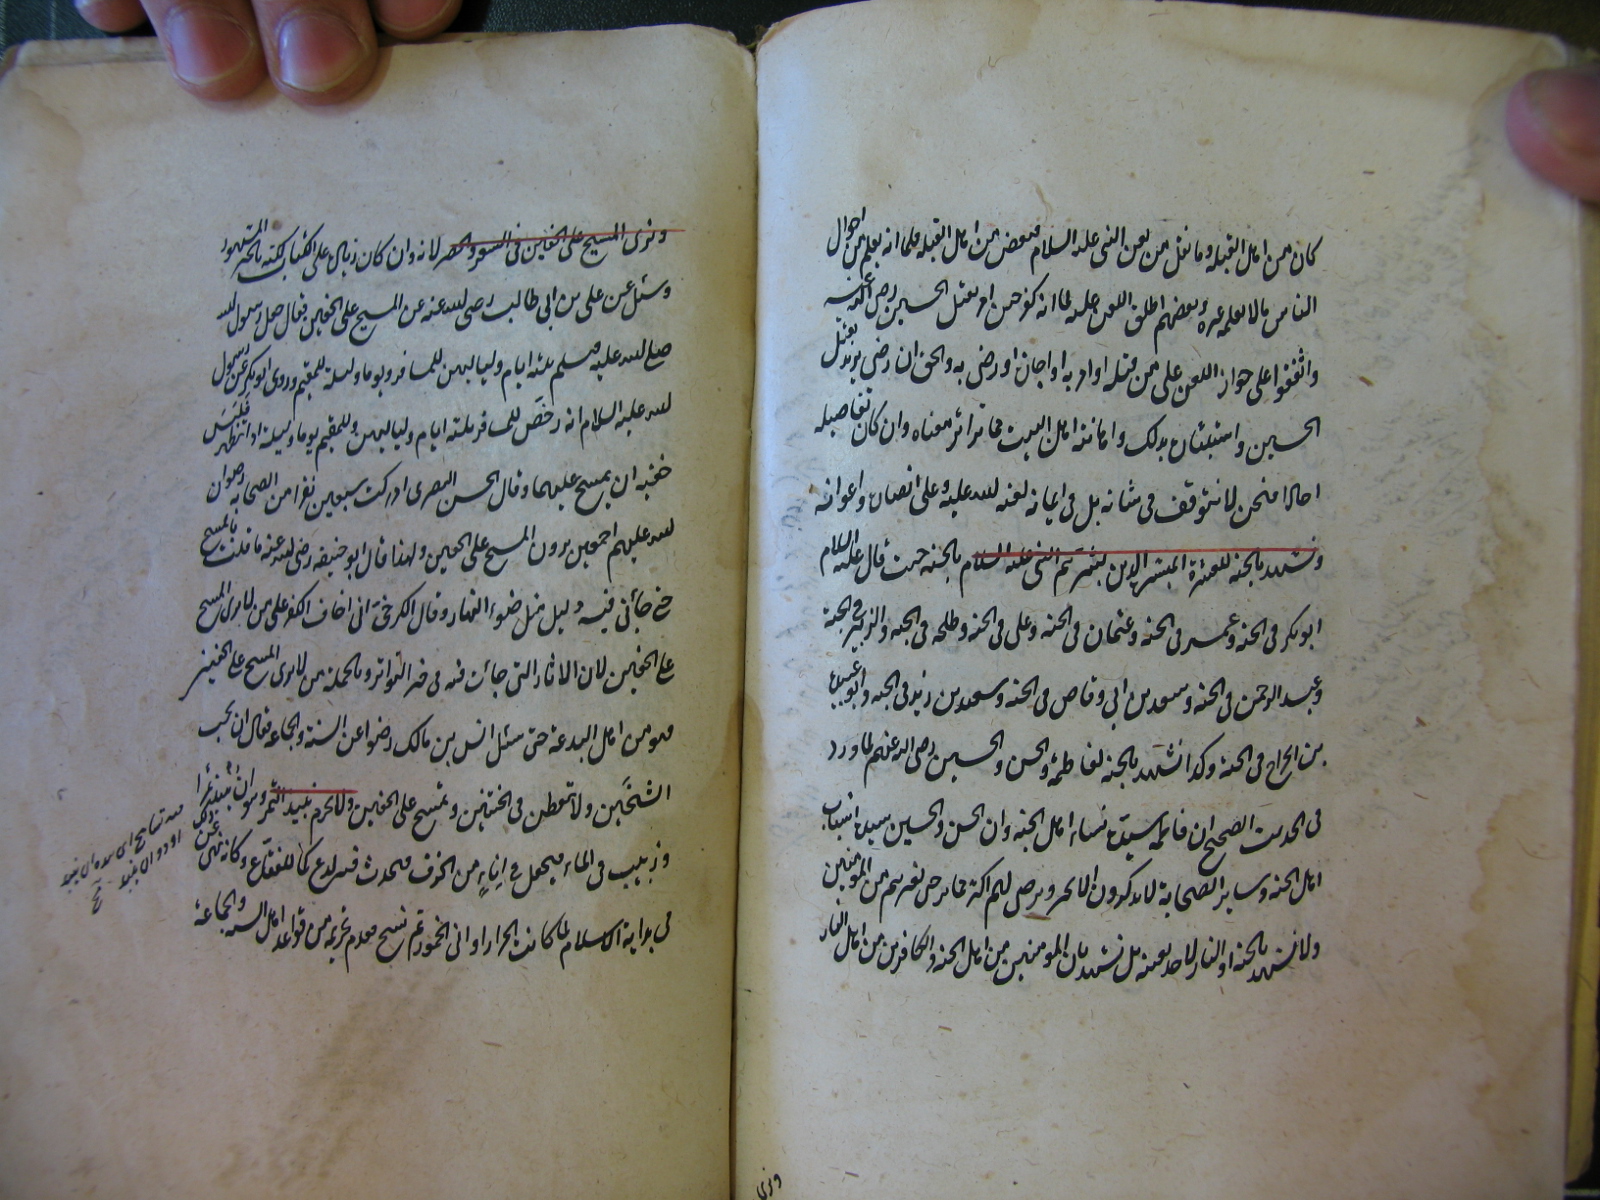 كان من اهل القبله وما نقل من لعن النبي عليه السلام لبعض من اهل القبله فلما انه يعلم من احوال
الناس ما لا يعلمه غيره وبعضهم اطلق اللعن عليه لما انه كفر حين امر بقتل الحسين رضي الله عنه
واتفقوا على جواز اللعن على من قتله او امر به او اجازه او رضي به والحق ان رضى يزيد بقتل
الحسين واستبشاره بذلك واهانته اهل البيت مما تواتر معناه وان كان تفاصيله
احادا فنحن لا نتوقف في شانه بل في ايمانه لعنه الله عليه وعلى انصاره واعوانه
ونشهد بالجنه للعشرة المبشرة الذين بشرهم النبي عليه السلام بالجنه حيث قال عليه السلام
ابوبكر في الجنه وعمر في الجنه وعثمان في الجنه وعلى في الجنه وطلحه في الجنه والزبير في الجنة
وعبد الرحمن في الجنه وسعد بن ابي وقاص في الجنه وسعيد بن زيد في الجنه وابو عبيدة
بن الجراح في الجنة وكذا نشهد بالجنه لفاطمة والحسن والحسين رضى الله عنهم لما ورد
في الحديث الصحيح ان فاطمه سيدة نساء اهل الجنه وان الحسن والحسين سيدا شباب
اهل الجنه وساير الصحابة لا يذكرون الا بخير ويرجى لهم اكثر مما يرجى لغيرهم من المومنين
ولا نشهد بالجنه او النار لاحد بعينه بل نشهد بان المومنين من اهل الجنه والكافرين من اهل النار
ونرى
ونرى المسح على الخفين في السفر والحضر لانه وان كان زيادة على الكتاب لكنه بالخبر المشهور
وسئل عن على بن ابى طالب رضى الله عنه عن المسح على الخفين فقال جعل رسول الله
صلى الله عليه وسلم ثلثه ايام ولياليهن للمسافر ويوما وليلة للمقيم وروى ابوبكر عن رسول
الله عليه السلام انه رخص للمسافر ثلثه ايام ولياليهن وللمقيم يوما وليلة اذا تطهر فلبس
خفيه ان يمسح عليهما وقال الحسن البصرى ادركت سبعين نفرا من الصحابه رضوان
الله عليهم اجمعين يرون المسح على الخفين ولهذا قال ابو حنيفه رضى الله عنه ما قلت بالمسح
حتى جاءنى فيه دليل مثل ضوء النهار وقال الكرخى انى اخاف الكفر على من لا يرى المسح
على الخفين لان الاثار التى جاءت فيه في حيز التواتر وبالجمله من لا يرى المسح على الخفين
فهو من اهل البدعة حتى سئل انس بن مالك رضه عن السنة والجماعه فقال ان تحب
الشيخين ولا تطعن في الختنين وتمسح على الخفين ولا نحرم نبيذ التمر وهو ان ينبذ تمر
وزبيب في الماء فيجعل في اناء من الخزف فيحدث فيه لدع كما للفقاع وكانه نهى عن ذلك
في بداية الاسلام لما كانت الجرار اوانى الخمور ثم نسخ فعدم تحريمه من قواعد اهل السنه والجماعة